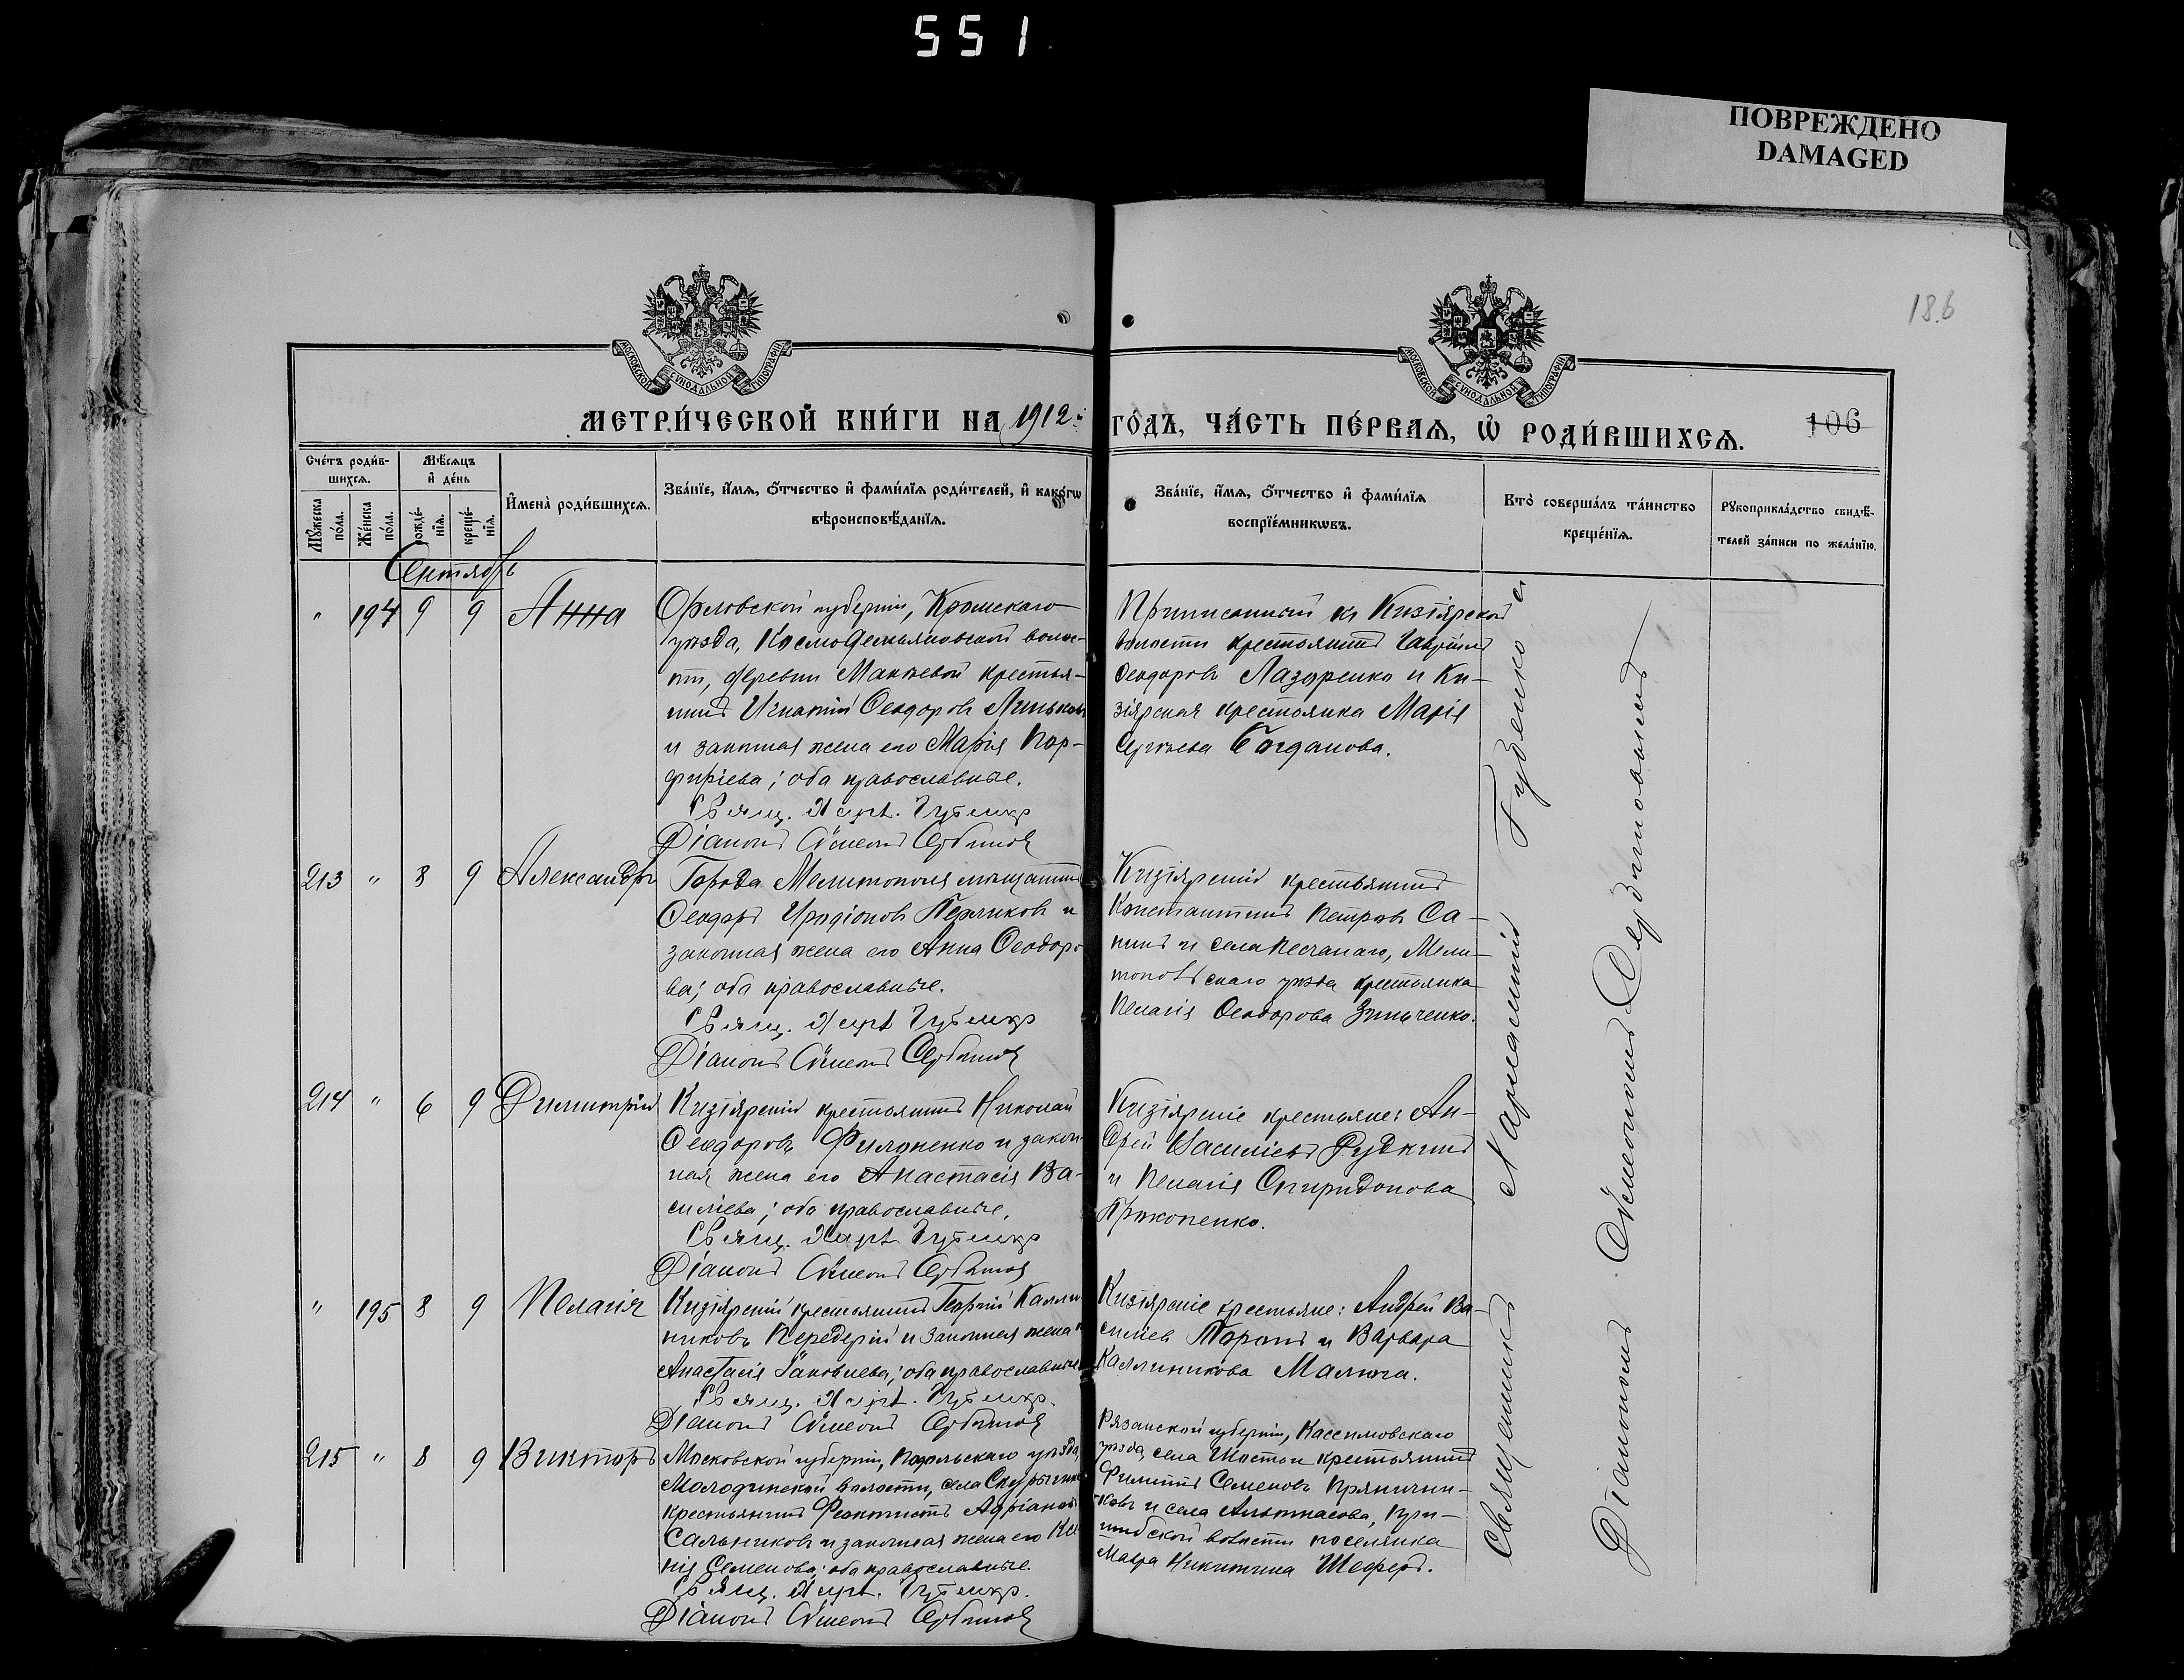 551
ПОВРЕЖДЕНО
DAMAGED
186
МОСКОВСКОЙ СУНОДАЛЬНОЙ ТИПОГРАФІИ
МОСКОВСКОЙ СУНОДАЛЬНОЙ ТИПОГРАФІИ
МЕТРИ́ЧЕСКОЙ КНИ́ГИ НА 1912й ГО́ДЪ, ЧА́СТЬ ПЕ́РВАѦ, Ѡ҆ РОДИ́ВШИХСѦ.
106
Сче́тъ роди́в-
шихсѧ.
Мꙋ́жеска по́ла.
Же́нска по́ла.
Мѣ́сѧцъ
и҆ де́нь
рожде́-
нїѧ.
креще́-
нїѧ.
И҆мена̀ роди́вшихсѧ.
Зва́нїе, и҆́мѧ, ѻ҆́тчество и҆ фами́лїѧ роди́телей, и҆ како́гѡ
вѣроисповѣ́данїѧ.
Зва́нїе, и҆́мѧ, ѻ҆́тчество и҆ фами́лїѧ
воспрїе́мникѡвъ.
Кто̀ соверша́лъ та́инство
креще́нїѧ.
Рꙋкоприкла́дство свидѣ́-
телей за́писи по жела́нїю.
Сентябрь
" 194 9 9 Анна
Орловской губерніи, Кромскаго
уѣзда, Космодемьяновской волос-
ти, деревни Макѣевой крестья-
нинъ Игнатій Ѳеодоровъ Линьковъ
и законная жена его Марія Пор-
фиріева; оба православные.
Свящ. Харл. Губенко
Діаконъ Сѵмеонъ Сербиновъ
Приписанный къ Кизіярской
волости крестьянинъ Гавріилъ
Ѳеодоровъ Лазаренко и Ки-
зіярская крестьянка Марія
Сергѣева Богданова.
213 " 8 9 Александръ
Города Мелитополя мѣщанинъ
Ѳеодоръ Иродіоновъ Перликовъ и
законная жена его Анна Ѳеодоро-
ва; оба православные.
Свящ. Харл. Губенко
Діаконъ Сѵмеонъ Сербиновъ
Кизіярскій крестьянинъ
Константинъ Петровъ Са-
нинъ и села Песчанаго, Мели-
топольскаго уѣзда крестьянка
Пелагія Ѳеодорова Зинченко.
214 " 6 9 Димитрій
Кизіярскій крестьянинъ Николай
Ѳеодоровъ Филоненко и закон-
ная жена его Анастасія Ва-
силіева; оба православные.
Свящ. Харл. Губенко
Діаконъ Сѵмеонъ Сербиновъ
Кизіярскіе крестьяне: Ан-
дрей Васильевъ Рудкинъ
и Пелагія Спиридонова
Прокопенко.
" 195 8 9 Пелагія
Кизіярскій крестьянинъ Георгій Калли-
никовъ Передерій и законная жена
Анастасія Іаковлева; оба православные
Свящ. Харл. Губенко.
Діаконъ Сѵмеонъ Сербиновъ
Кизіярскіе крестьяне: Андрей Ва-
силіев Таранъ и Варвара
Каллиникова Малюга.
215 " 8 9 Викторъ
Московской губерніи, Подольскаго уѣзда,
Молодинской волости, села Скурыгина
крестьянинъ Ѳеоктистъ Адріановъ
Сальниковъ и законная жена его Ксе-
нія Семенова; оба православные.
Свящ. Харл. Губенко.
Діаконъ Сѵмеонъ Сербиновъ
Рязанской губерніи, Кассимовскаго
уѣзда, села Шостьи крестьянинъ
Филиппъ Семеновъ Пряничи-
ковъ и села Альтнасова, При-
шибской волости поселянка
Мавра Никитина Шеферъ.
Священникъ Харлампій Губенко съ
Діакономъ Сѵмеономъ Сербиновымъ